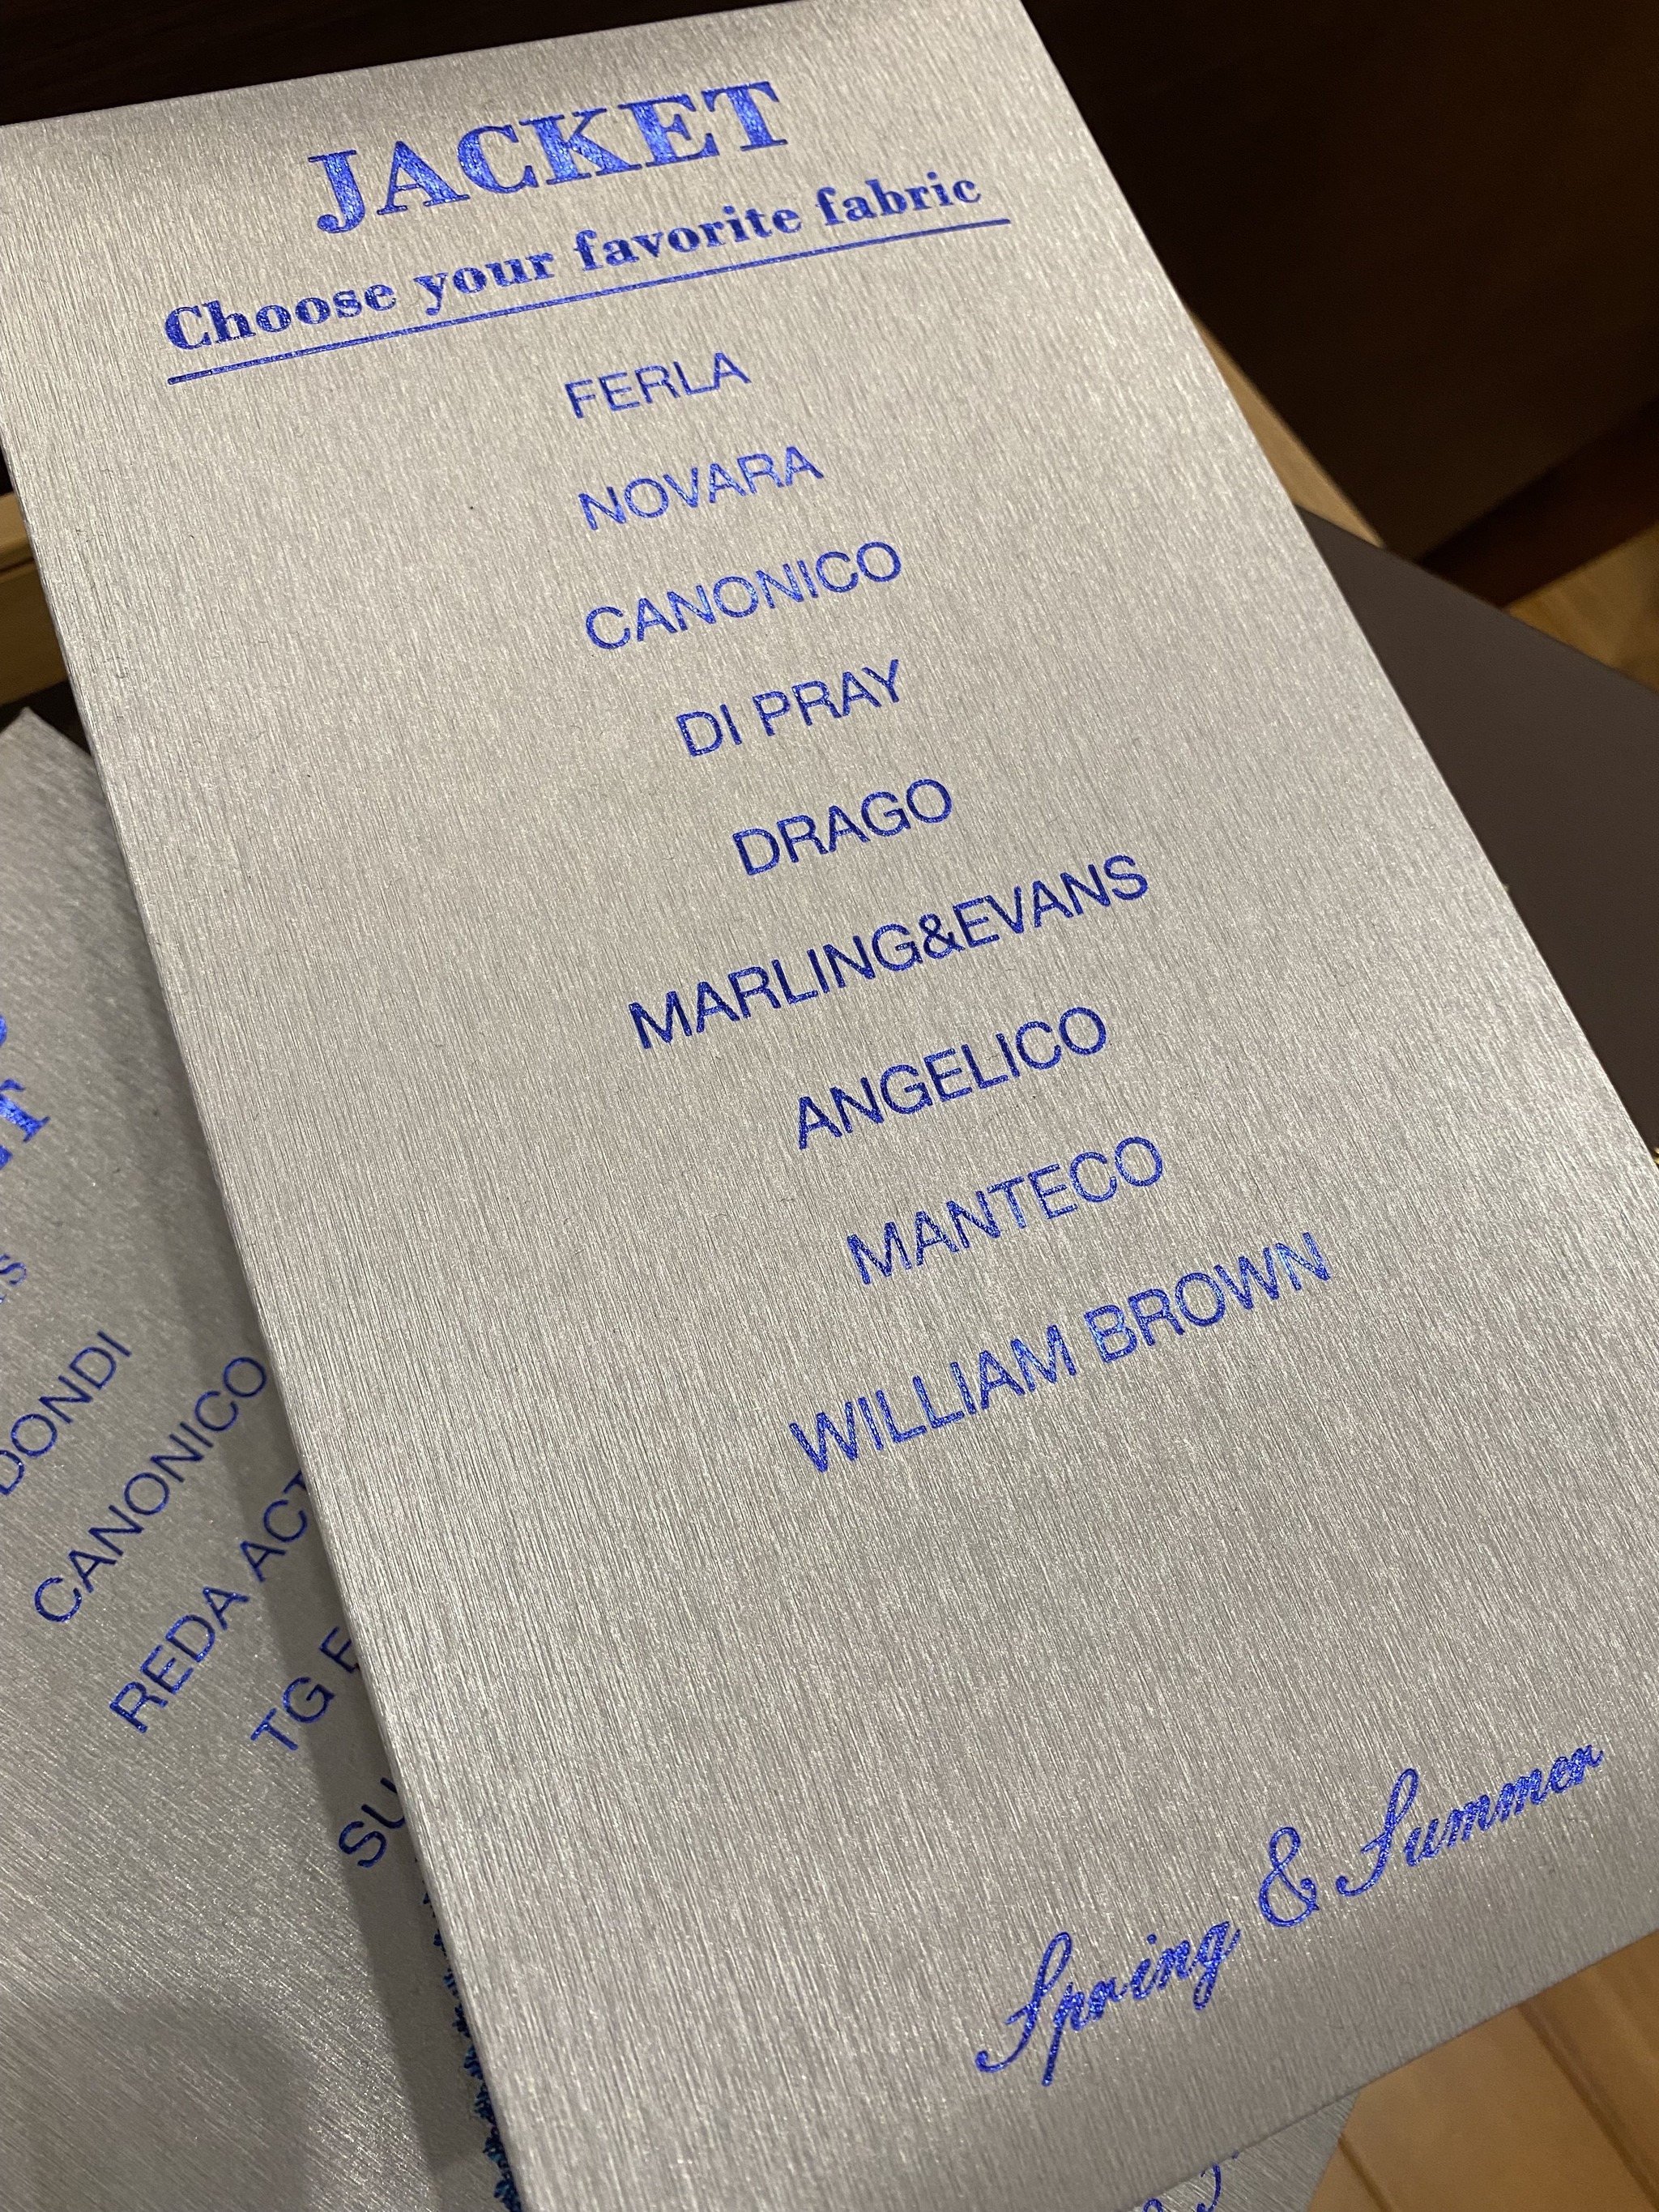 JACKET
Choose your favorite fabric
FERLA
NOVARA
CANONICO
DI PRAY
DRAGO
MARLING&EVANS
ANGELICO
MANTECO
WILLIAM BROWN
Spring & Summer
CANONICO
REDA
TG